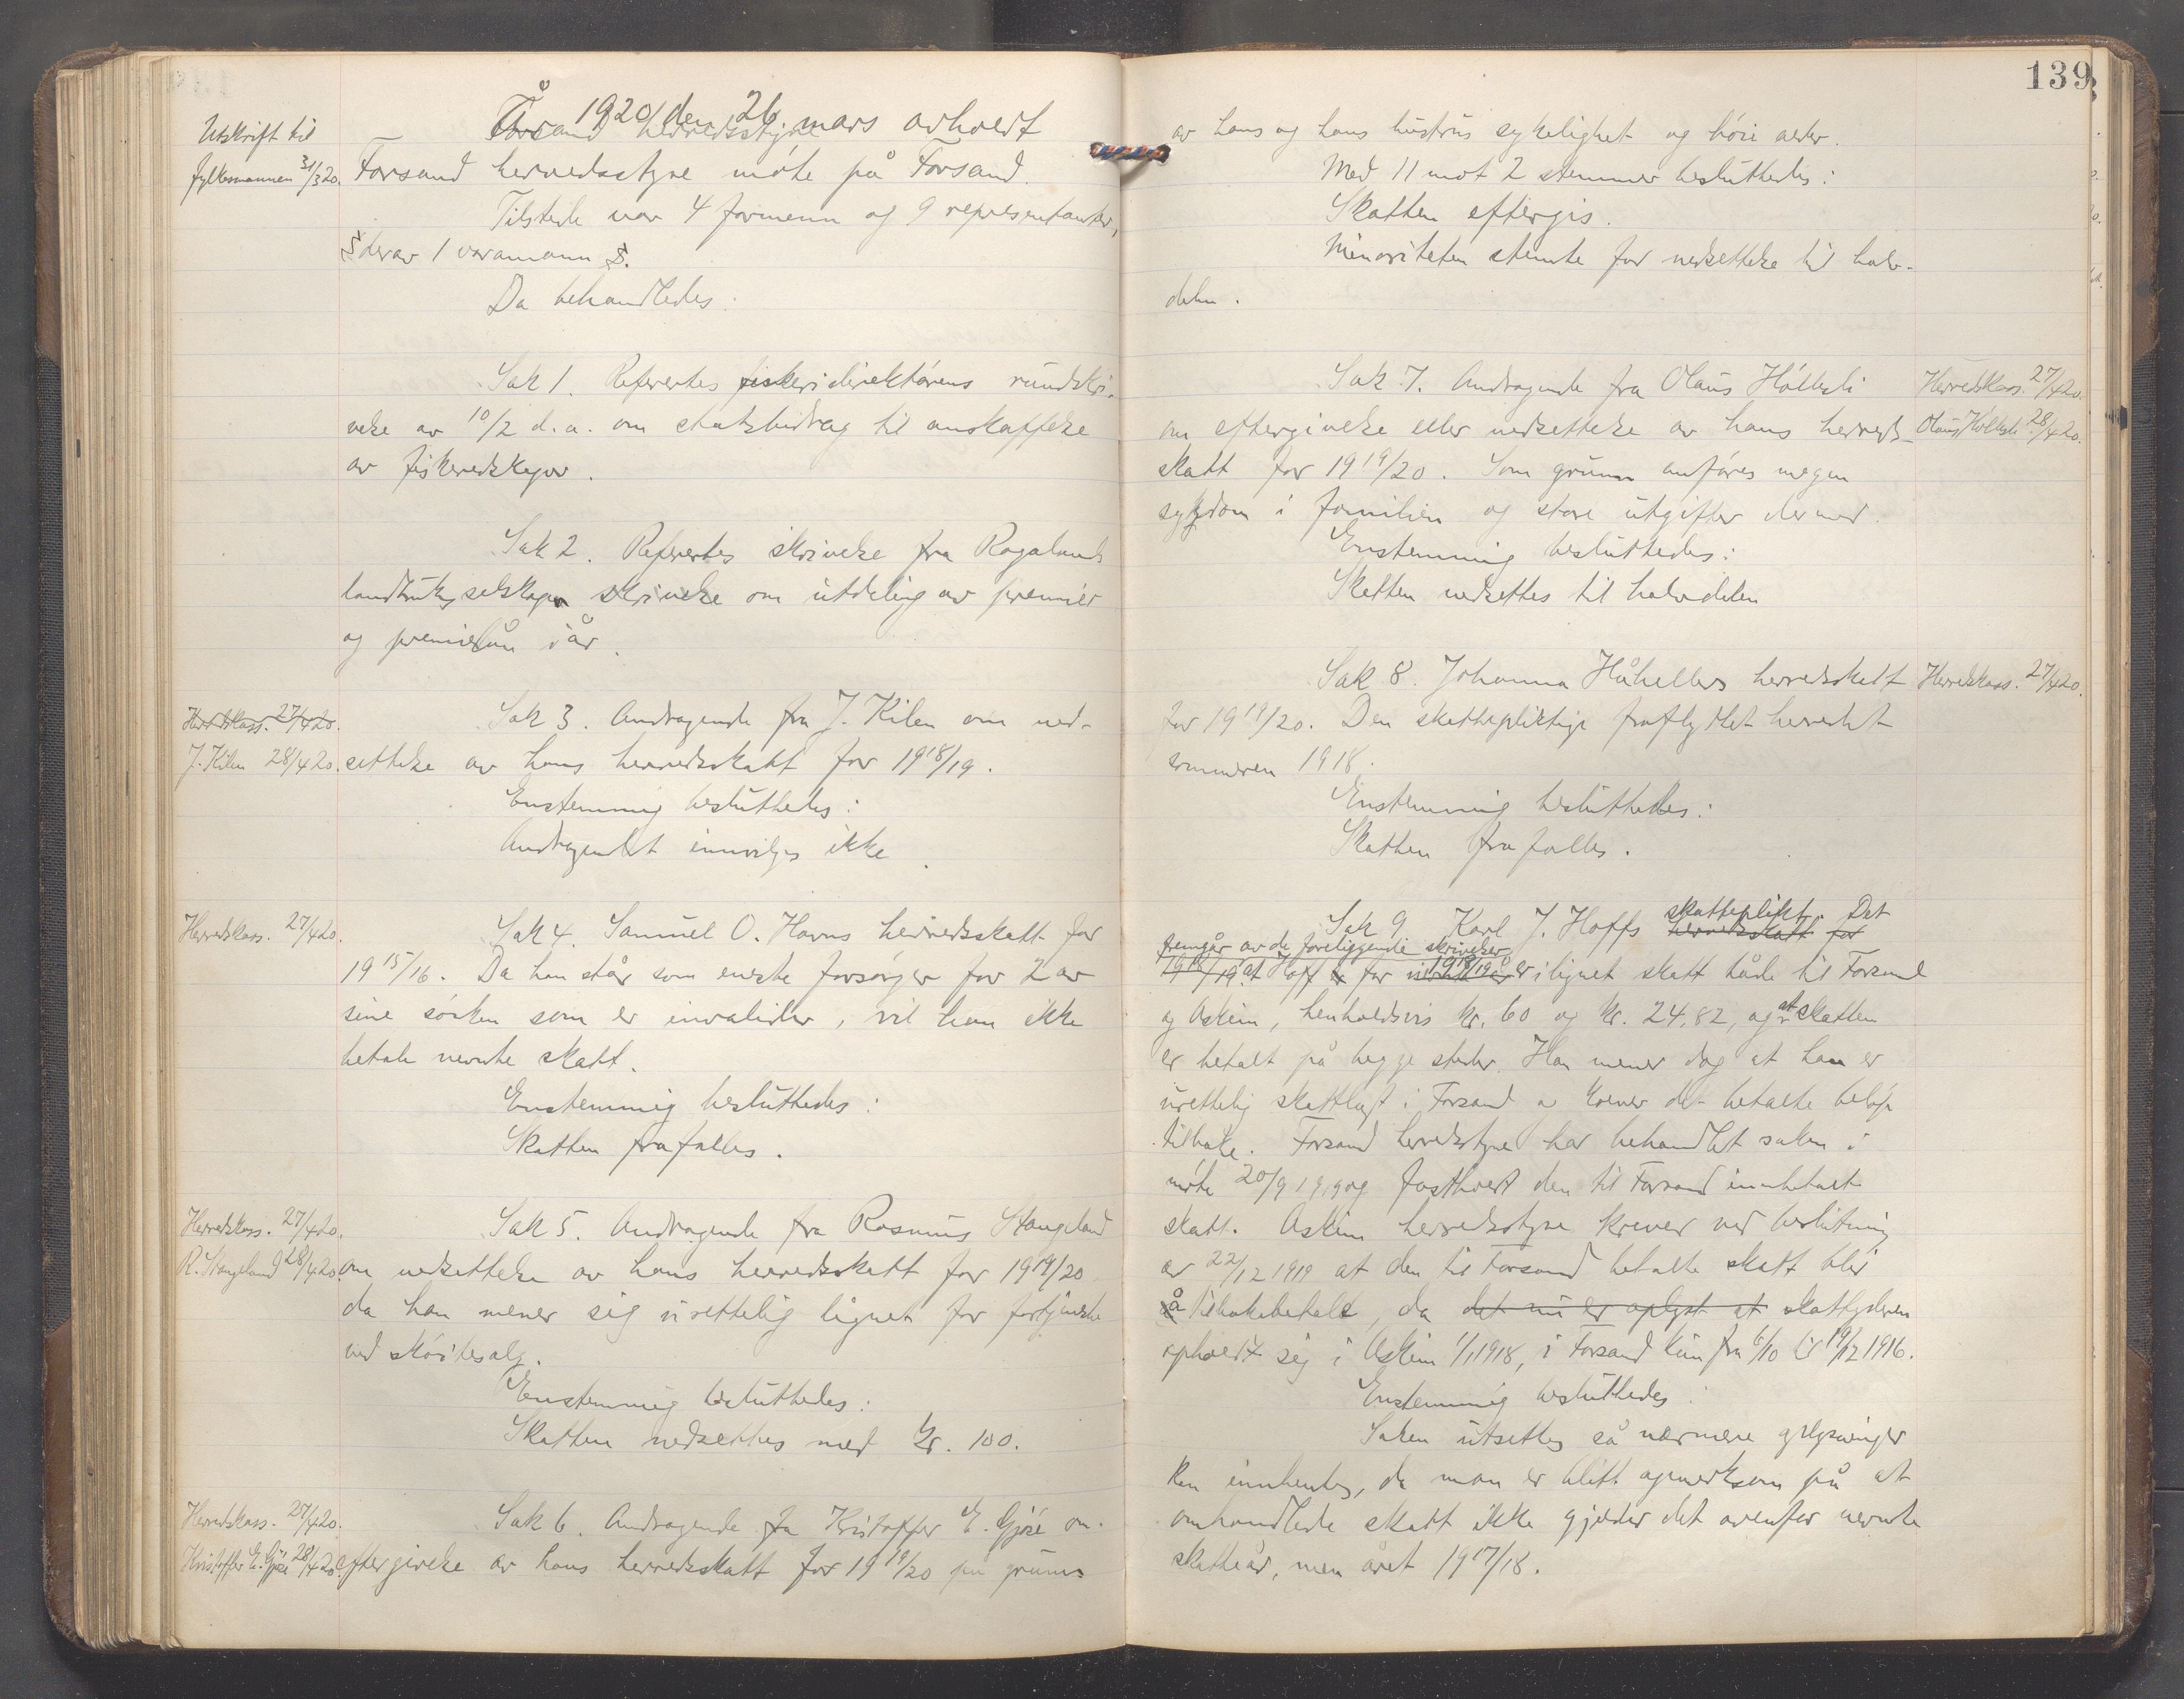 Utskrift til
fylkesmannen 31/3 20.
År 1920 den 26. mars avholdt
Forsand herredsstyre møte på Forsand.
Tilstede var 4 formenn og 9 representanter,
derav 1 varamann.
Da behandledes:
Sak 1. Referertes fiskeridirektørens rundskri-
velse av 10/2 d.a. om statsbidrag til anskaffelse
av fiskeredskaper.
Sak 2. Referertes skrivelse fra Rogaland
landbruksselskap skrivelse om utdeling av premier
og premielån i år.
Herredskass. 27/4 20.
J. Kilen 28/4 20.
Sak 3. Andragende fra J. Kilen om ned-
settelse av hans herredsskatt for 1918/19.
Enstemmig besluttedes:
Andragendet innvilges ikke.
Herredskass. 27/4 20.
Sak 4. Samuel O. Havns herredsskatt for
1915/16. Da han står som eneste forsørger for 2 av
sine søsken som er invalider, vil han ikke
betale nevnte skatt.
Enstemmig besluttedes:
Skatten frafalles.
Herredskass. 27/4 20.
R. Stangeland 28/4 20.
Sak 5. Andragende fra Rasmus Stangeland
om nedsettelse av hans herredsskatt for 1919/20
da han mener sig urettelig lignet for fortjeneste
ved skøitesalg.
Enstemmig besluttedes:
Skatten nedsettes med kr. 100.
Herredskass. 27/4 20.
Kristoffer E. Gjøse 28/4 20.
Sak 6. Andragende fra Kristoffer E. Gjøse om
eftergivelse av hans herredsskatt for 1919/20 på grunn
139
av hans og hans hustrus sykelighet og høie alder.
Med 11 mot 2 stemmer besluttedes:
Skatten eftergis.
Minoriteten stemte for nedsettelse til halv-
delen.
Sak 7. Andragende fra Olaus Høllesli
Herredskass. 27/4 20.
om eftergivelse eller nedsettelse av hans herreds-
Olaus Høllesli 28/4 20.
skatt for 1919/20. Som grunn anføres megen
sykdom i familien og store utgifter dermed.
Enstemmig besluttedes:
Skatten nedsettes til halvdelen
Sak 8. Johanna Håhellers herredsskatt
Herredskass. 27/4 20.
for 1919/20. Den skattepliktige fraflyttet herredet
sommeren 1918.
Enstemmig besluttedes:
Skatten frafalles.
Sak 9 Karl J. Hoffs herredsskatt for skatteplikt. Det
fremgår av de foreliggende skrivelser
1918/19. at Hoff for 1918/19 er ilignet skatt både til Forsand
og Askim, henholdsvis kr. 60 og kr. 24,82, og at skatten
er betalt på begge steder. Han mener dog at han er
urettelig skattlagt i Forsand og krever det betalte beløp
tilbake. Forsand herredsstyre har behandlet saken i
møte 20/9 1919 og fastholdt den til Forsand innbetalte
skatt. Askim herredsstyre krever ved beslutning
av 22/12 1919 at den til Forsand betalte skatt blir
tilbakebetalt, da det nu er oplyst at skattyderen
opholdt sig i Askim 1/1 1918, i Forsand kun fra 6/10 til 19/12 1916.
Enstemmig besluttedes:
Saken utsettes så nærmere oplysninger
kan innhentes, da man er blitt opmerksom på at
omhandlede skatt ikke gjelder det ovenfor nevnte
skatteår, men året 1917/18.